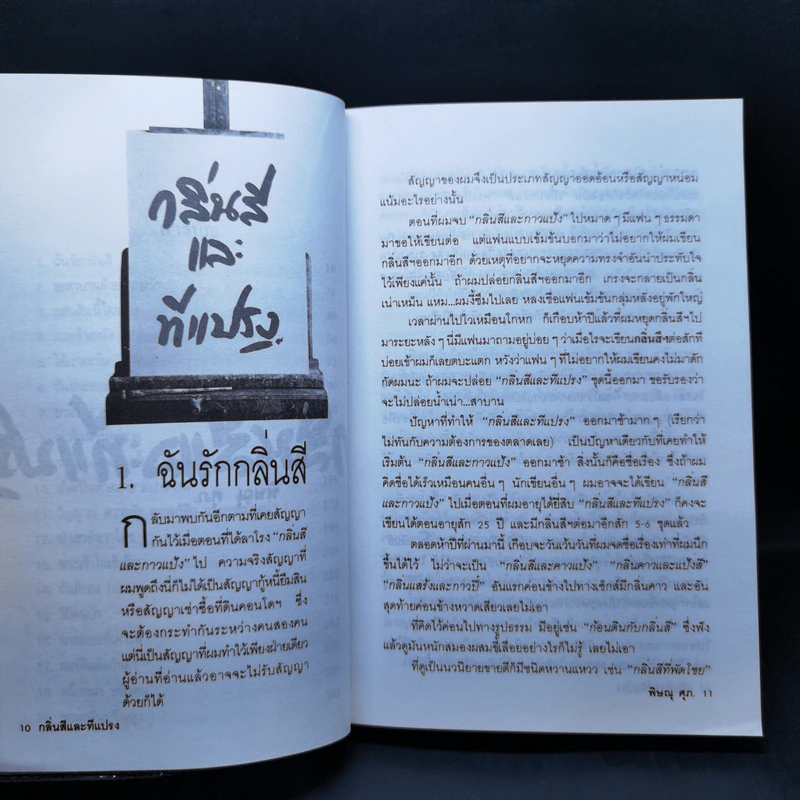 กลิ่นสี
และ
ทีแปรง
1. ฉันรักกลิ่นสี
กลับมาพบกันอีกตามที่เคยสัญญา
กันไว้เมื่อตอนที่ได้ลาโรง “กลิ่นสี
และกาวแป้ง” ไป ความจริงสัญญาที่
ผมพูดถึงนี่ก็ไม่ได้เป็นสัญญากู้หนี้ยืมสิน
หรือสัญญาเช่าซื้อที่ดินคอนโดฯ ซึ่ง
จะต้องกระทำกันระหว่างคนสองคน
แต่นี่เป็นสัญญาที่ผมทำไว้เพียงฝ่ายเดียว
ผู้อ่านที่อ่านแล้วอาจจะไม่รับสัญญา
ด้วยก็ได้
10 กลิ่นสีและทีแปรง
สัญญาของผมจึงเป็นประเภทสัญญาออดอ้อนหรือสัญญาหน่อม
แน้มอะไรอย่างนั้น
ตอนที่ผมจบ “กลิ่นสีและกาวแป้ง” ไปหมาด ๆ มีแฟน ๆ ธรรมดา
มาขอให้เขียนต่อ แต่แฟนแบบเข้มข้นบอกมาว่าไม่อยากให้ผมเขียน
กลิ่นสีฯออกมาอีก ด้วยเหตุที่อยากจะหยุดความทรงจำอันน่าประทับใจ
ไว้เพียงแค่นั้น ถ้าผมปล่อยกลิ่นสีฯออกมาอีก เกรงจะกลายเป็นกลิ่น
เน่าเหม็น แหม...ผมงี้ซึมไปเลย หลงเชื่อแฟนเข้มข้นกลุ่มหลังอยู่พักใหญ่
เวลาผ่านไปไวเหมือนโกหก ก็เกือบห้าปีแล้วที่ผมหยุดกลิ่นสีฯไป
มาระยะหลัง ๆ นี่มีแฟนมาถามอยู่บ่อย ๆ ว่าเมื่อไรจะเขียนกลิ่นสีฯต่อสักที
บ่อยเข้าผมก็เลยตบะแตก หวังว่าแฟน ๆ ที่ไม่อยากให้ผมเขียนคงไม่มาดัก
กัดผมนะ ถ้าผมจะปล่อย “กลิ่นสีและทีแปรง” ชุดนี้ออกมา ขอรับรองว่า
จะไม่ปล่อยน้ำเน่า...สาบาน
ปัญหาที่ทำให้ “กลิ่นสีและทีแปรง” ออกมาช้ามาก ๆ (เรียกว่า
ไม่ทันกับความต้องการของตลาดเลย) เป็นปัญหาเดียวกับที่เคยทำให้
เริ่มต้น “กลิ่นสีและกาวแป้ง” ออกมาช้า สิ่งนั้นก็คือชื่อเรื่อง ซึ่งถ้าผม
คิดชื่อได้เร็วเหมือนคนอื่น ๆ นักเขียนอื่น ๆ ผมอาจจะได้เขียน “กลิ่นสี
และกาวแป้ง” ไปเมื่อตอนที่ผมอายุได้ยี่สิบ “กลิ่นสีและทีแปรง” ก็คงจะ
เขียนได้ตอนอายุสัก 25 ปี และมีกลิ่นสีฯต่อมาอีกสัก 5-6 ชุดแล้ว
ตลอดห้าปีที่ผ่านมานี้ เกือบจะวันเว้นวันที่ผมจดชื่อเรื่องเท่าที่ผมนึก
ขึ้นได้ไว้ ไม่ว่าจะเป็น “กลิ่นสีและคาวแป้ง” “กลิ่นคาวและแป้งสี”
“กลิ่นแสร้งและกาวปี๋” อันแรกค่อนข้างไปทางเซ็กส์มีกลิ่นคาว และอัน
สุดท้ายค่อนข้างหวาดเสียวเลยไม่เอา
ที่คิดไว้ค่อนไปทางรูปธรรม มีอยู่เช่น “ก้อนดินกับกลิ่นสี” ซึ่งฟัง
แล้วดูมันหนักสมองผสมขี้เลื่อยอย่างไรก็ไม่รู้ เลยไม่เอา
ที่ดูเป็นนวนิยายขายดีก็มีชนิดหวานแหวว เช่น “กลิ่นสีที่พัดโชย”
พิษณุ ศุภ. 11